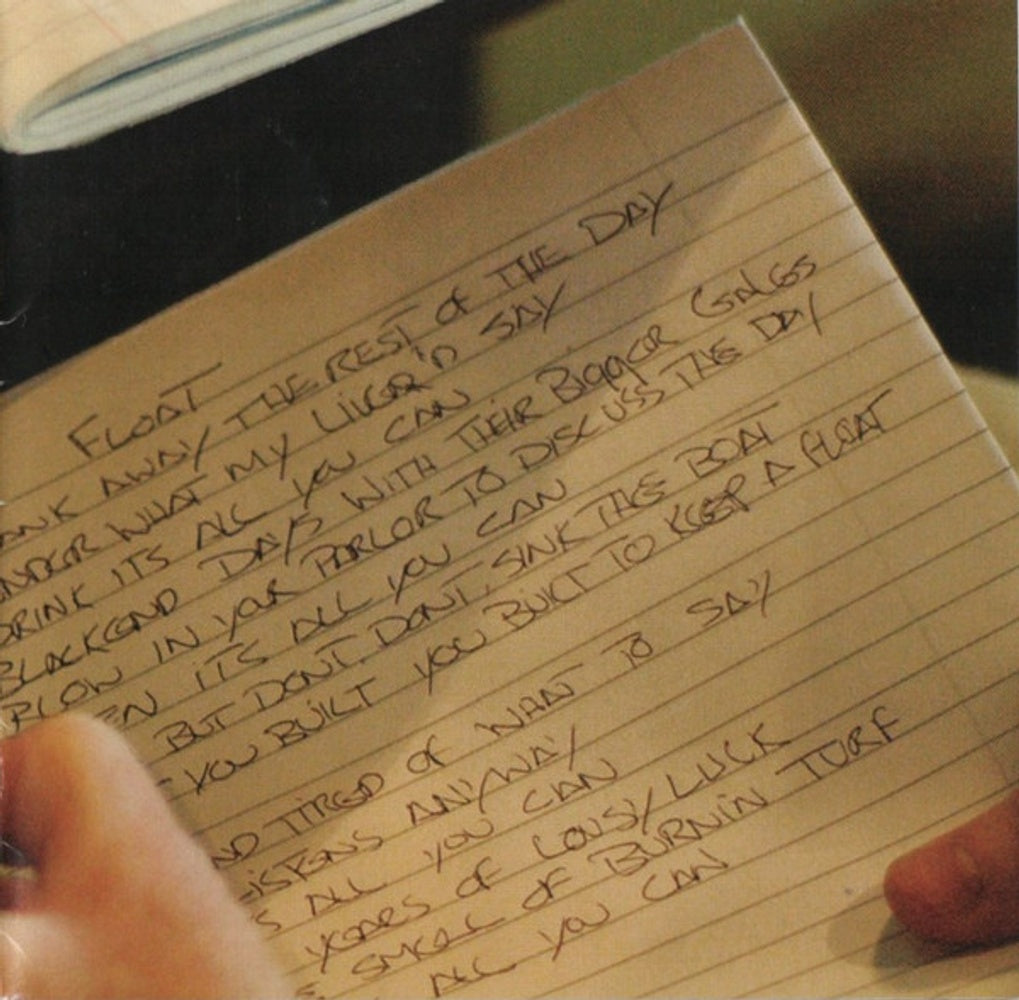 FLOAT
ANK AWAY THE REST OF THE DAY
NDER WHAT MY LIVER'D SAY
DRINK ITS ALL YOU CAN
BLACKEND DAYS WITH THEIR BIGGER GALES
BLOW IN YOUR PARLOR TO DISCUSS THE DAY
EN ITS ALL YOU CAN
BUT DONT, DONT, SINK THE BOAT
YOU BUILT YOU BUILT TO KEEP A FLOAT
ND TIRED OF WHAT TO SAY
LISTENS ANYWAY
S ALL YOU CAN
YEARS OF LOUSY LUCK
SMELL OF BURNIN TURF
ALL YOU CAN